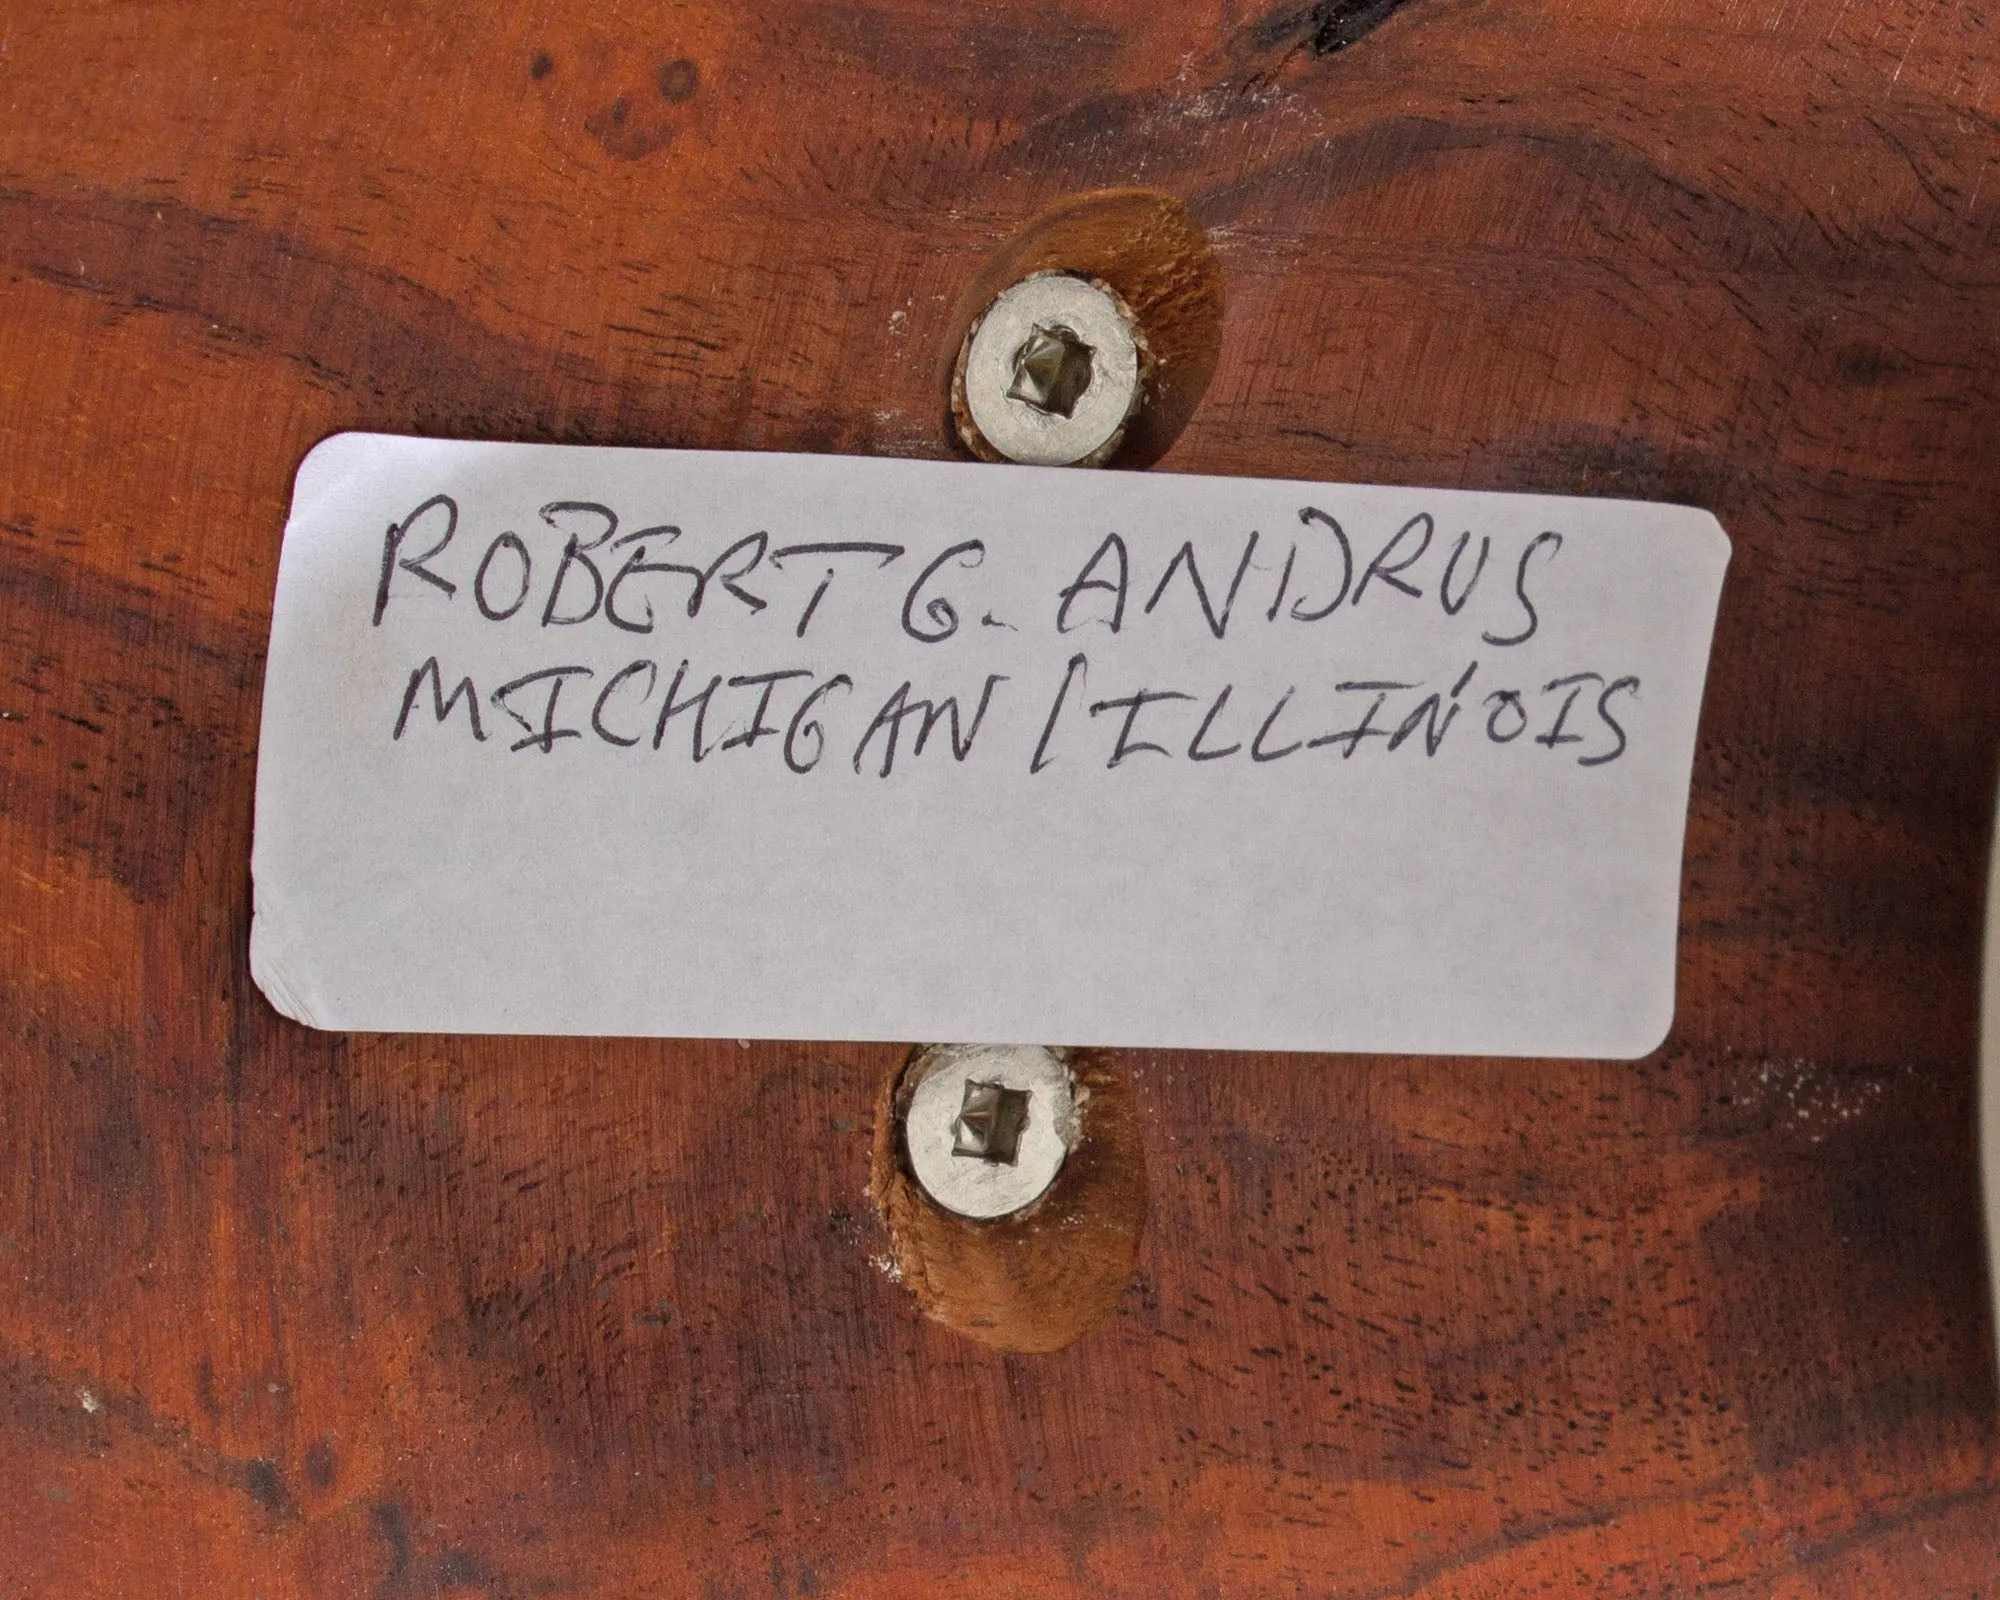 ROBERT G. ANDRUS
MICHIGAN / ILLINOIS